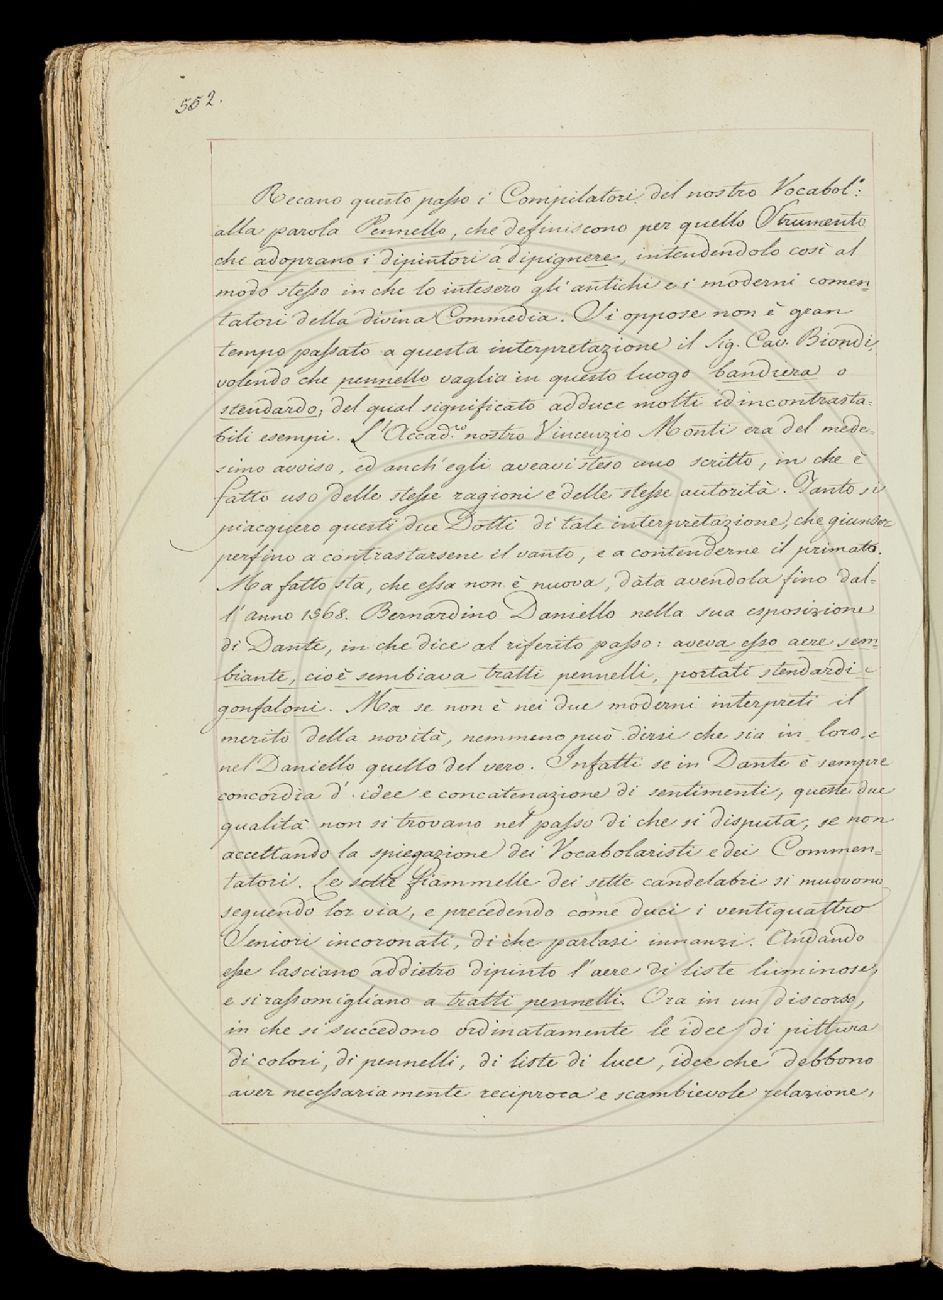 552.
Recano questo passo i Compilatori del nostro Vocabol.º:
alla parola Pennello, che definiscono per quello Strumento
che adoprano i dipintori a dipignere, intendendolo così al
modo stesso in che lo intesero gli antichi e i moderni comen=
tatori della divina Commedia. Si oppose non è gran
tempo passato a questa interpretazione il Sig. Cav. Biondi,
volendo che pennello vaglia in questo luogo bandiera o
stendardo, del qual significato adduce molti ed incontrasta=
bili esempi. L'Accad.co nostro Vincenzio Monti era del mede=
simo avviso, ed anch'egli aveavi steso uno scritto, in che è
fatto uso delle stesse ragioni e delle stesse autorità. Tanto si
piacquero questi due Dotti di tale interpretazione, che giunser
perfino a contrastarsene il vanto, e a contenderne il primato.
Ma fatto sta, che essa non è nuova, data avendola fino dal=
l'anno 1568. Bernardino Daniello nella sua esposizione
di Dante, in che dice al riferito passo: aveva esso aere sem=
biante, cioè sembiava tratti pennelli, portati stendardi e
gonfaloni. Ma se non è nei due moderni interpreti il
merito della novità, nemmeno può dirsi che sia in loro, e
nel Daniello quello del vero. Infatti se in Dante è sempre
concordia d'idee e concatenazione di sentimenti, queste due
qualità non si trovano nel passo di che si disputa, se non
accettando la spiegazione dei Vocabolaristi e dei Commen=
tatori. Le sette fiammelle dei sette candelabri si muovono
seguendo lor via, e precedendo come duci i ventiquattro
Seniori incoronati, di che parlasi innanzi. Andando
esse lasciano addietro dipinto l'aere di liste luminose,
e si rassomigliano a tratti pennelli. Ora in un discorso,
in che si succedono ordinatamente le idee di pittura
di colori, di pennelli, di liste di luce, idee che debbono
aver necessariamente reciproca e scambievole relazione,